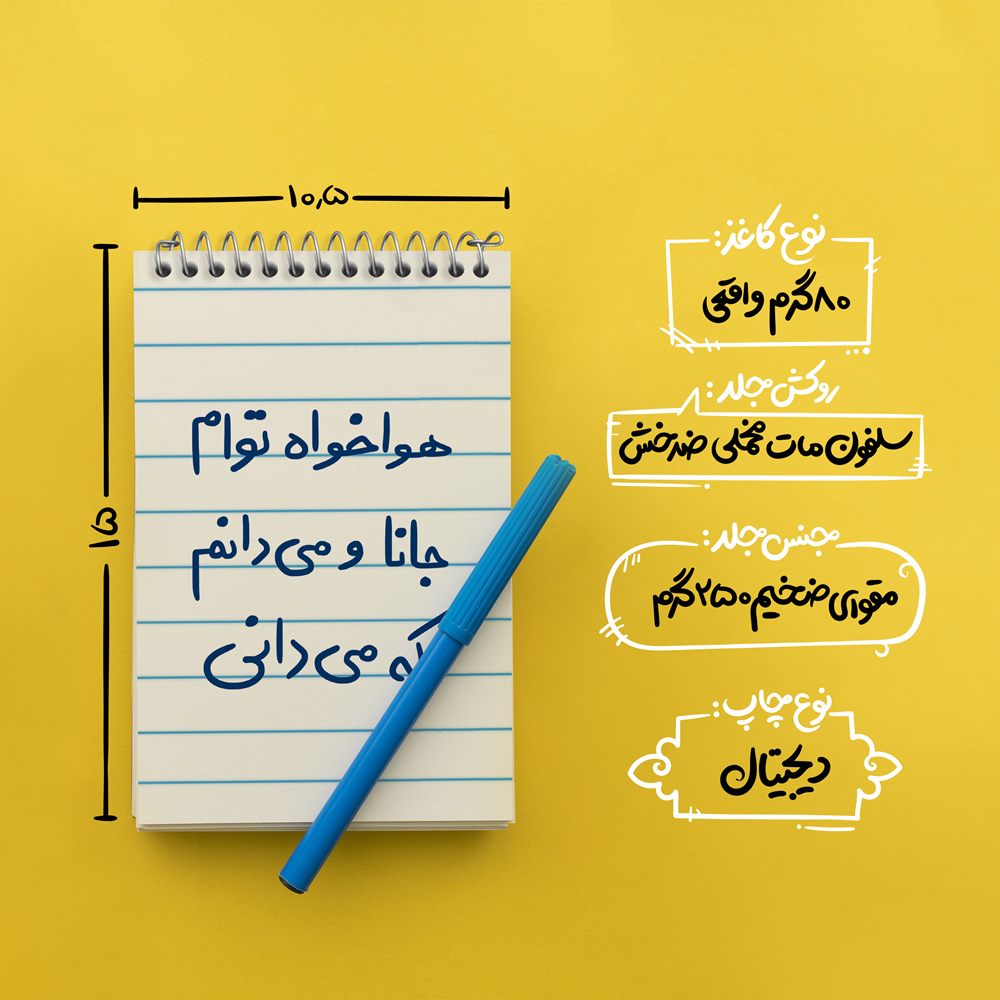 ۱۰٫۵
۱۵
هواخواه توام
جانا و می‌دانم
که می‌دانی
نوع کاغذ:
۸۰گرم واقعی
روکش جلد:
سلفون مات مخملی ضدخش
جنس جلد:
مقوای ضخیم ۲۵۰گرم
نوع چاپ:
دیجیتال